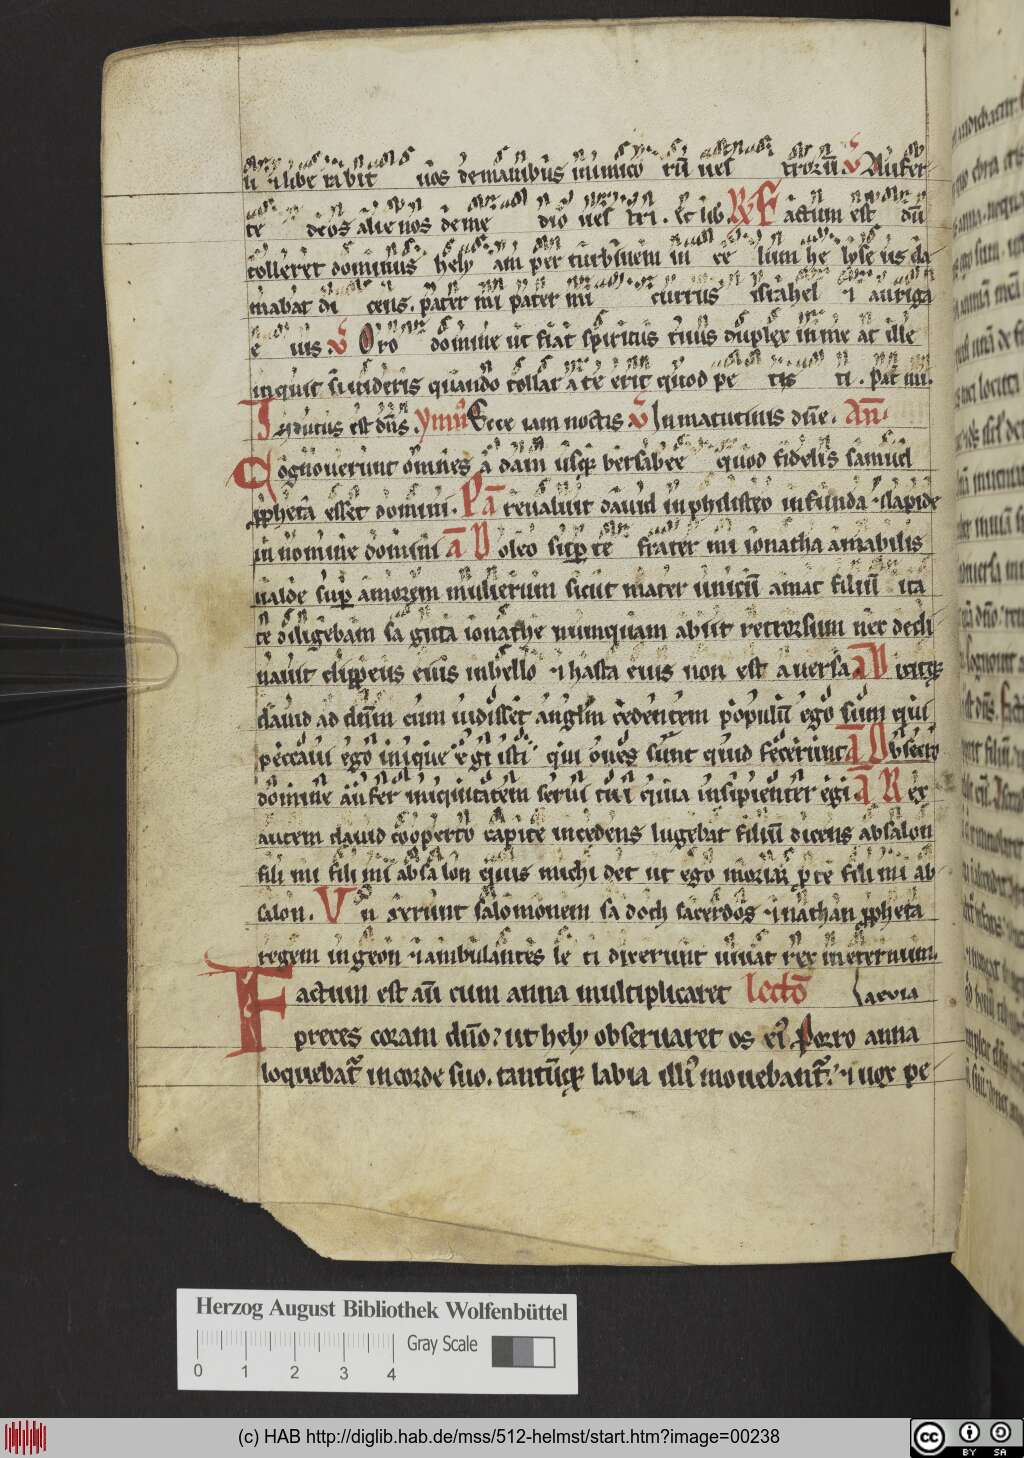 li ⁊ libe rabit uos de manibus inimico rũ ues troꝝ. v̄ Aufer
te deos alienos de me dio ues tri. Et lib. R̄ Factum est dũ
tolleret dominus hely am per turbinem in ce lum he lyse us cla
mabat di cens. pater mi pater mi currus israhel ⁊ auriga
e ius. v̄ Oro domine ut fiat spiritus tuus duplex in me at ille
inquit si uideris quando tollar a te erit quod pe tis ti. Pat mi.
Indutus est dñs. ymn⁹ Ecce iam noctis v̄ In matutinis dñe. An̄.
Cognouerunt omnes a dan usq; bersabee quod fidelis samuel
ꝓpheta esset domini. An̄ Preualuit dauid in philisteo in funda ⁊ lapide
in nomine domini a̅ Doleo sup te frater mi ionatha amabilis
ualde sup amorem mulierum sicut mater unicũ amat filiũ ita
te diligebam sa gitta ionathe numquam abiit retrorsum nec decli
nauit clippeus eius in bello ⁊ hasta eius non est a uersa a̅ Dixitq;
dauid ad dñm cum uidisset anglm cedentem populũ ego sum qui
peccaui ego inique egi isti qui oues sunt quid fecerunt a̅ Obsecro
domine aufer iniquitatem serui tui quia insipienter egi a̅ Rex
autem dauid cooperto capite incedens lugebat filiũ dicens absalon
fili mi fili mi absa lon quis michi det ut ego moriar ꝑ te fili mi ab
salon. Un xerunt salomonem sadoch sacerdos ⁊ nathan ꝓpheta
regem in geon ⁊ ambulantes le ti dixerunt uiuat rex in eternum.
Factum est aũ cum anna multiplicaret lectō
preces coram dño: ut hely obseruaret os ei⁹. Porro anna
loquebat in corde suo. tantũq; labia illi⁹ mouebant. ⁊ uox pe
Herzog August Bibliothek Wolfenbüttel
Gray Scale
0 1 2 3 4
(c) HAB http://diglib.hab.de/mss/512-helmst/start.htm?image=00238
cc BY SA